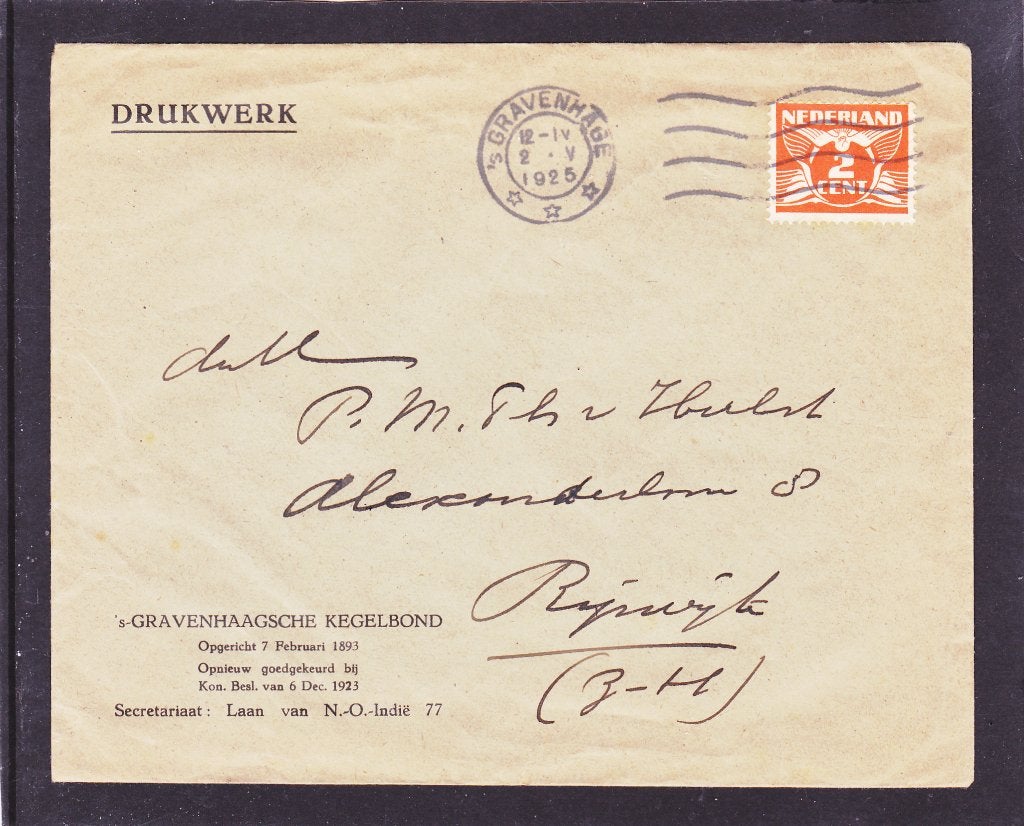 DRUKWERK
's GRAVENHAGE
12-IV
2 · V
1925
NEDERLAND
2
CENT
P. M. Th v Hulst
Alexanderlaan 8
Rijswijk
(Z-H)
's-GRAVENHAAGSCHE KEGELBOND
Opgericht 7 Februari 1893
Opnieuw goedgekeurd bij
Kon. Besl. van 6 Dec. 1923
Secretariaat: Laan van N.-O.-Indië 77